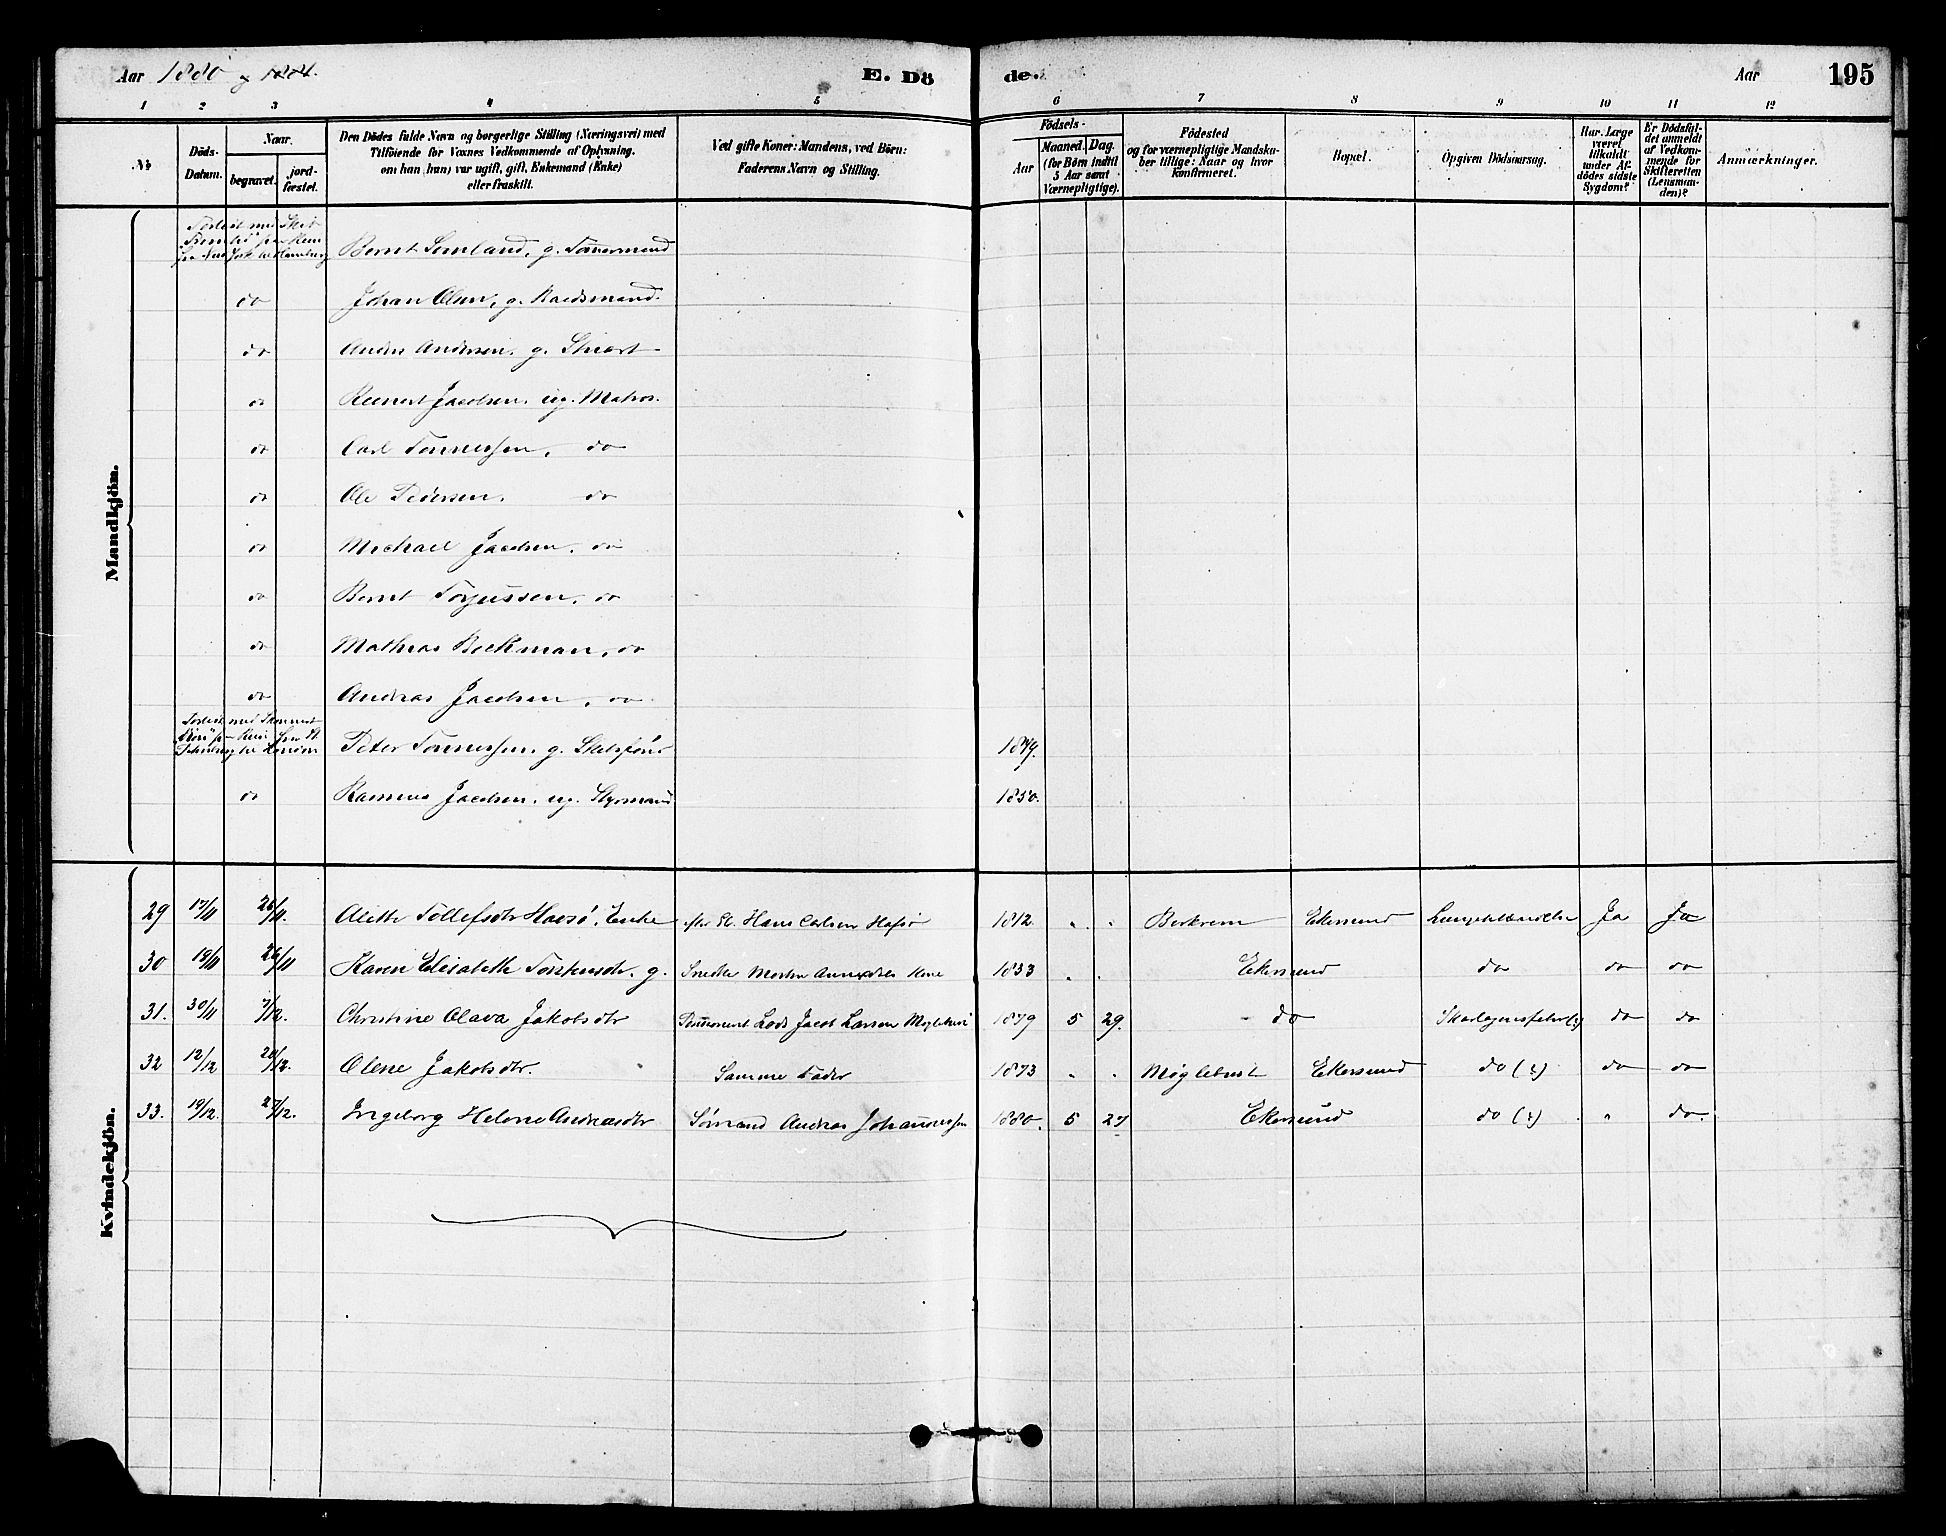 Aar 1880
E. Dö de.
Aar
195
1 2 3 4 5 6 7 8 9 10 11 12
No
Döds-Datum.
Naar
begravet.
jordfæstet.
Den Dödes fulde Navn og borgerlige Stilling (Næringsvei) med Tilföiende for Voxnes Vedkommende af Oplysning, om han (hun) var ugift, gift, Enkemand (Enke) eller fraskilt.
Ved gifte Koner: Mandens, ved Börn: Faderens Navn og Stilling.
Födsels-
Aar
Maaned. Dag.
(for Börn indtil 5 Aar samt Værnepligtige).
Födested og for værnepligtige Mandskaber tillige: Naar og hvor konfirmeret.
Bopæl.
Opgiven Dödsaarsag.
Har Læge været tilkaldt under Afdödes sidste Sygdom?
Er Dödsfaldet anmeldt af Vedkommende for Skifteretten (Lensmanden)?
Anmærkninger.
Mandkjön.
Forlist med Skib
Bernt Semland, g. Tömmermand
do Johan Olsen, g. Baadsmand.
do Andrs Andersen, g.
do Reinert Jacobsen, ug. Matros.
do Carl Tönnessen, do
do Ole Pedersen. do
do Michael Jacobsen, do
do Bernt Torjussen, do
do Mathias Beckman, do
do Andreas Jacobsen, do
Peter Tönnessen, g. 1849.
do Rasmus Jacobsen, ug. Styrmand 1850.
Kvindekjön.
29 17/11 26/11. Alette Tollefsdtr Havsö, Enke efter Hans Carlsen Hafsö 1812 " " Birkrem Ekersund Lungebetændelse Ja Ja
30 18/11 26/11 Karen Elisabeth Torkensdtr. g. Snedker Morten 1833 " " Ekersund do do do
31. 30/11 7/12. Christine Olava Jakobsdtr Lods Jacob Larsen Möglebust 1879 5 29. do Skarlagensfeber do do
32 12/12 20/12. Olene Jakobsdtr. Samme Fader 1873 " " Möglebust Ekersund do do do
33. 19/12. 27/12. Ingeborg Helene Andreasdtr Sömand Andreas Johannessen 1880. 5 27 Ekersund do " do.